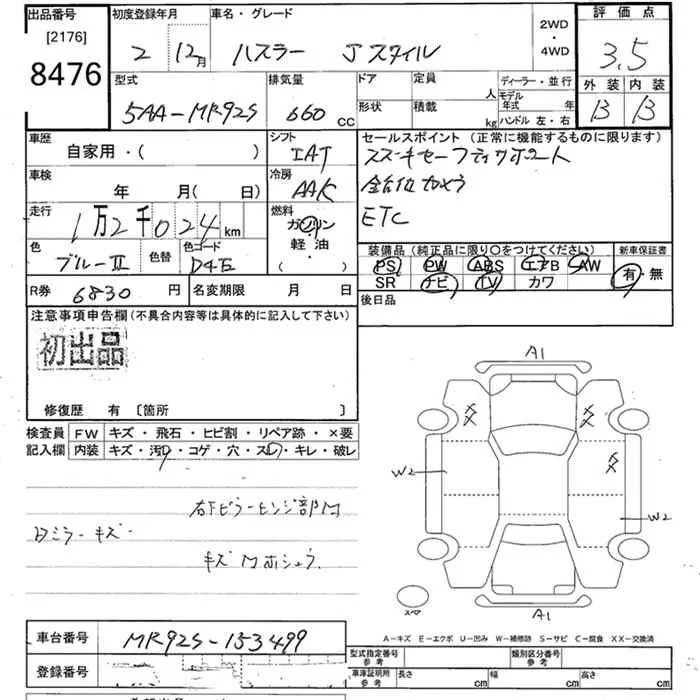 出品番号
[2176]
8476
初度登録年月
2 12月
車名・グレード
ハスラー Jスタイル
2WD
・
4WD
評価点
3.5
外装 内装
B B
型式
5AA-MR92S
排気量
660 CC
ドア
形状
定員 人
積載 kg
ディーラー・並行
モデル年式 年
ハンドル 左・右
車歴
自家用・( )
シフト
IAT
セールスポイント (正常に機能するものに限ります)
スズキセーフティサポート
全方位カメラ
ETC
車検
年 月( 日)
冷房
AAC
走行
1万2千024km
燃料
ガソリン
軽・油
( ・ )
色
ブルーII
色替
色コード
D4E
装備品 (純正品に限り○をつけてください)
PS PW ABS エアB AW
SR ナビ TV カワ
新車保証書
有・無
R券 6830円
名変期限 月 日
後日品
注意事項申告欄(不具合内容等は具体的に記入して下さい)
初出品
修復歴 有 〔箇所 〕
検査員記入欄
FW キズ・飛石・ヒビ割・リペア跡・×要
内装 キズ・汚れ・コゲ・穴・スレ・キレ・破レ
ヒンジ部
ミラーキズ
キズ
A1
W2
W2
A1
スペア
A-キズ E-エクボ U-凹み W-補修跡 S-サビ C-腐食 XX-交換済
車台番号
MR92S-153499
登録番号
型式指定番号
参考
類別区分番号
参考
車庫証明用
参考
長さ cm
幅 cm
高さ cm